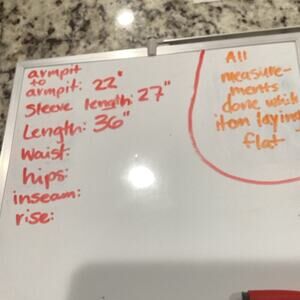 armpit
to
armpit: 22"
Sleeve length: 27"
Length: 36"
Waist:
hips:
inseam:
rise:
All
measure-
ments
done while
item laying
flat